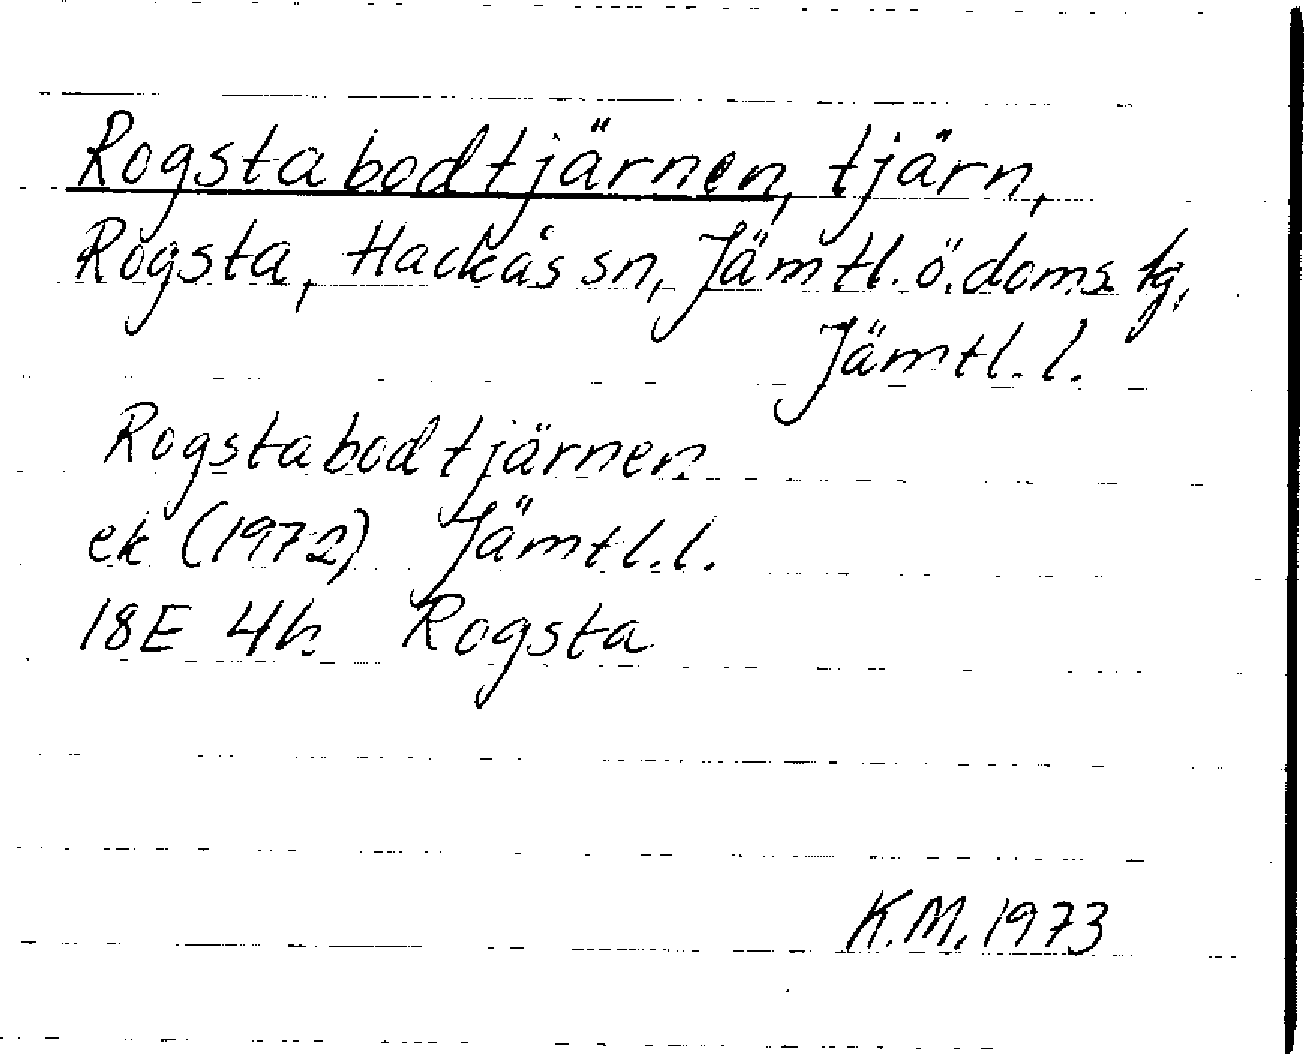 Rogstabodtjärnen, tjärn,
Rogsta, Hackås sn, Jämtl. ö. doms tg,
Jämtl. l.
Rogstabodtjärnen
ek (1972) Jämtl. l.
18E 4h Rogsta
K.M. 1973